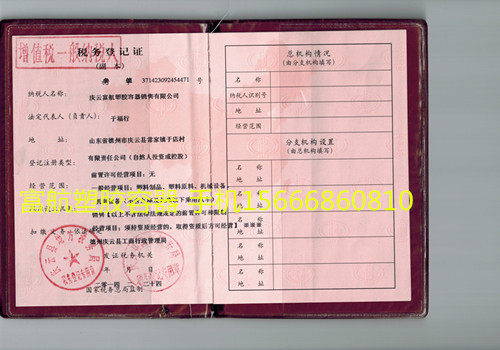 增值税一般纳税人
税务登记证
(副本)
371423092454471 号
纳税人名称:
庆云富航塑胶容器销售有限公司
法定代表人(负责人):
于福行
地址:
山东省德州市庆云县常家镇于店村
登记注册类型:
有限责任公司(自然人投资或控股)
前置许可经营项目:无
经营范围:
一般经营项目:塑料制品、塑料原料、机械设备、
富航塑胶容器 手机15666860810
销售【以上不含
经营项目:须持资质经营的,取得资质后方可经营】
扣缴义务
德州庆云县工商行政管理局
发证税务机关
二零一四
二十四
国家税务总局监制
总机构情况
(由分支机构填写)
名称
纳税人识别号
地址
经营范围
分支机构设置
(由总机构填写)
名称
地址
名称
地址
名称
地址
名称
地址
名称
地址